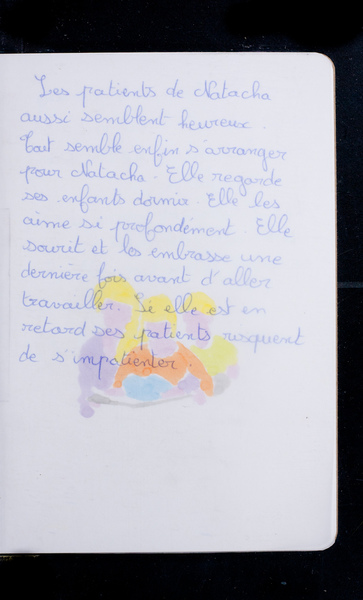 Les patients de Natacha
aussi semblent heureux.
Tout semble enfin s'arranger
pour Natacha. Elle regarde
ses enfants dormir. Elle les
aime si profondément. Elle
sourit et les embrasse une
dernière fois avant d'aller
travailler. Si elle est en
retard ses patients risquent
de s'impatienter.